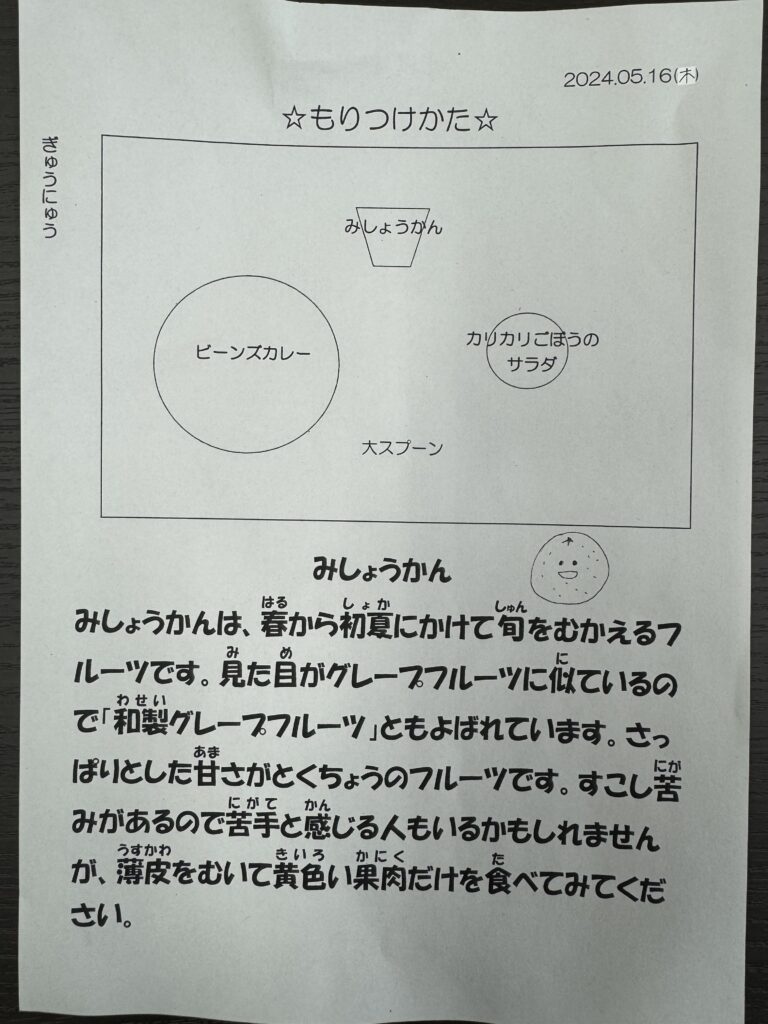 2024.05.16(木)
☆もりつけかた☆
ぎゅうにゅう
みしょうかん
ビーンズカレー
カリカリごぼうの
サラダ
大スプーン
みしょうかん
みしょうかんは、春から初夏にかけて旬をむかえるフ
ルーツです。見た目がグレープフルーツに似ているの
で「和製グレープフルーツ」ともよばれています。さっ
ぱりとした甘さがとくちょうのフルーツです。すこし苦
みがあるので苦手と感じる人もいるかもしれません
が、薄皮をむいて黄色い果肉だけを食べてみてくだ
さい。